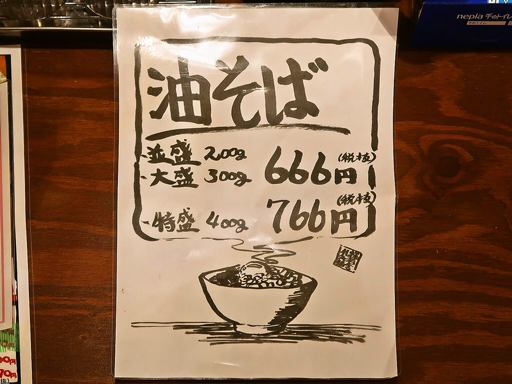 nepia
油そば
・並盛 200g
・大盛 300g
666円 (税抜)
・特盛 400g 766円 (税抜)